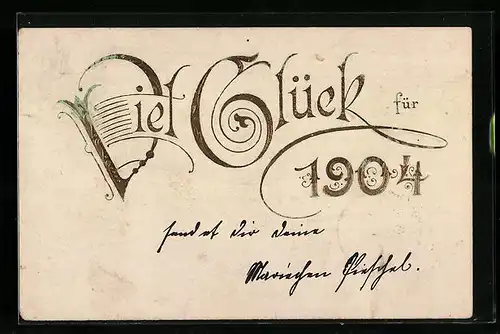 Viel Glück für
1904
sendet dir deine
Mariechen Pieschel.